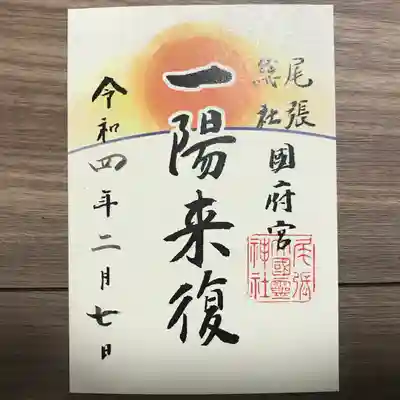 尾張
総社
國府宮
尾張
大國靈
神社
一陽来復
令和四年二月七日